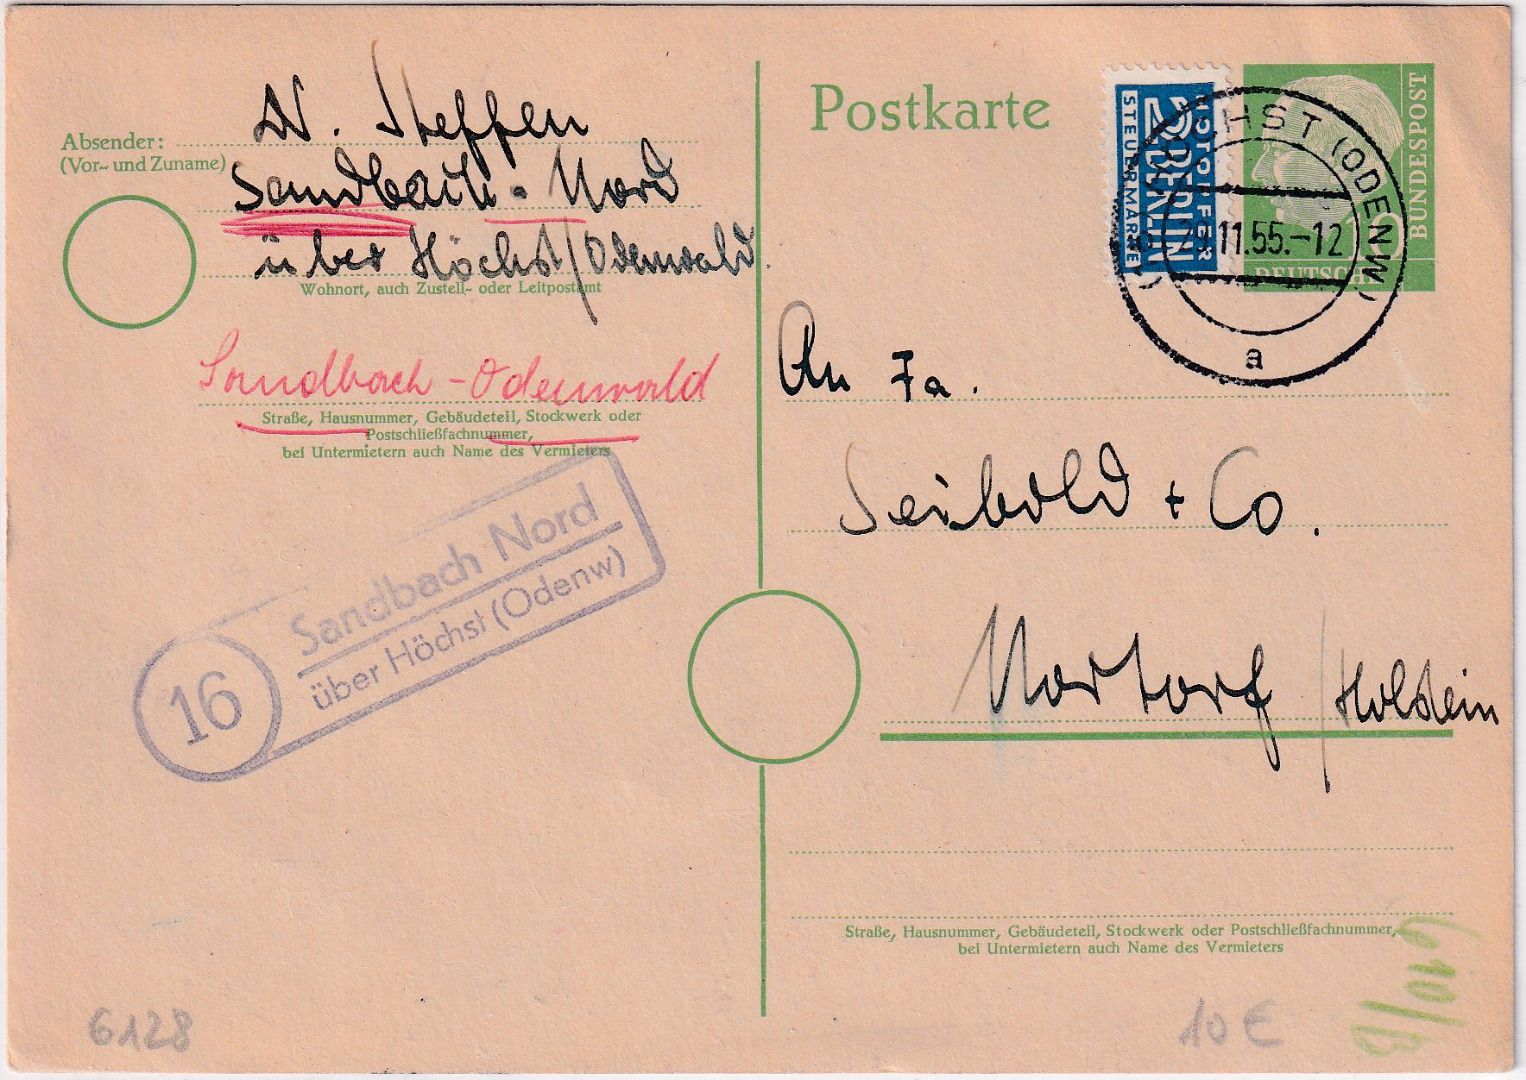 Absender:
(Vor- und Zuname)
W. Steffen
Sandbach-Nord
über Höchst/Odenwald.
Wohnort, auch Zustell- oder Leitpostamt
Sandbach-Odenwald
Straße, Hausnummer, Gebäudeteil, Stockwerk oder
Postschließfachnummer,
bei Untermietern auch Name des Vermieters
16
Sandbach Nord
über Höchst (Odenw)
6128
Postkarte
NOTOPFER
2 BERLIN
STEUERMARKE
DEUTSCHE
BUNDESPOST
HÖCHST (ODENW)
11.55.-12
a
An Fa.
Seibold + Co.
Nortorf /Holstein
Straße, Hausnummer, Gebäudeteil, Stockwerk oder Postschließfachnummer,
bei Untermietern auch Name des Vermieters
10 €